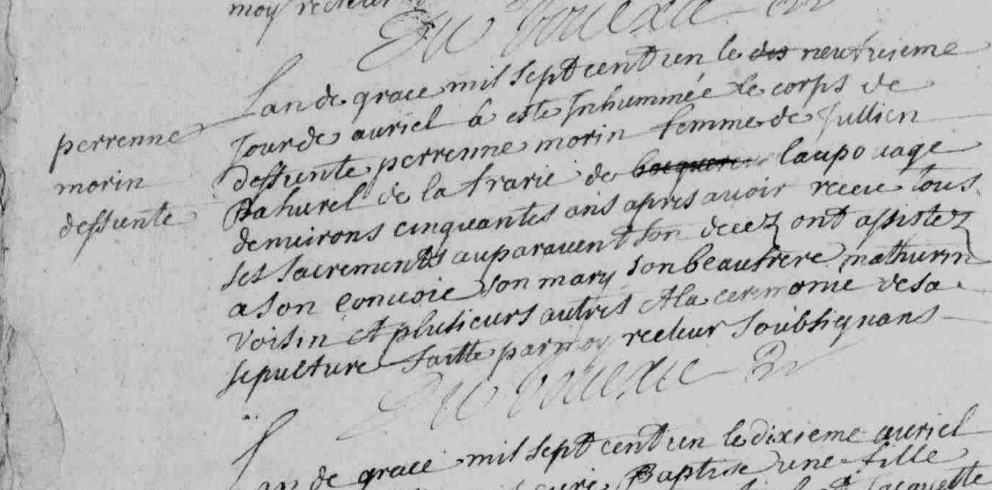 moy recteur
Du Bouexic Rr
Lan de grace mil sept cent un le dix neufvieme
perrenne
Jour de auriel a esté Inhummée le corps de
morin
deffunte perrenne morin femme de Jullien
deffunte
Bahurel de la frarie de laupo uage
denuirons cinquantes ans apres auoir receu tous
ses sacrements auparauent son decez ont assistez
a son conuoie son mary son beaufrere mathurin
Voisin et plusieurs autres et la cermonie de sa
sepulture faitte par moy recteur soubsignans
Du Bouexic Rr
Lan de grace mil sept cent un le dixieme auriel
Baptise une fille